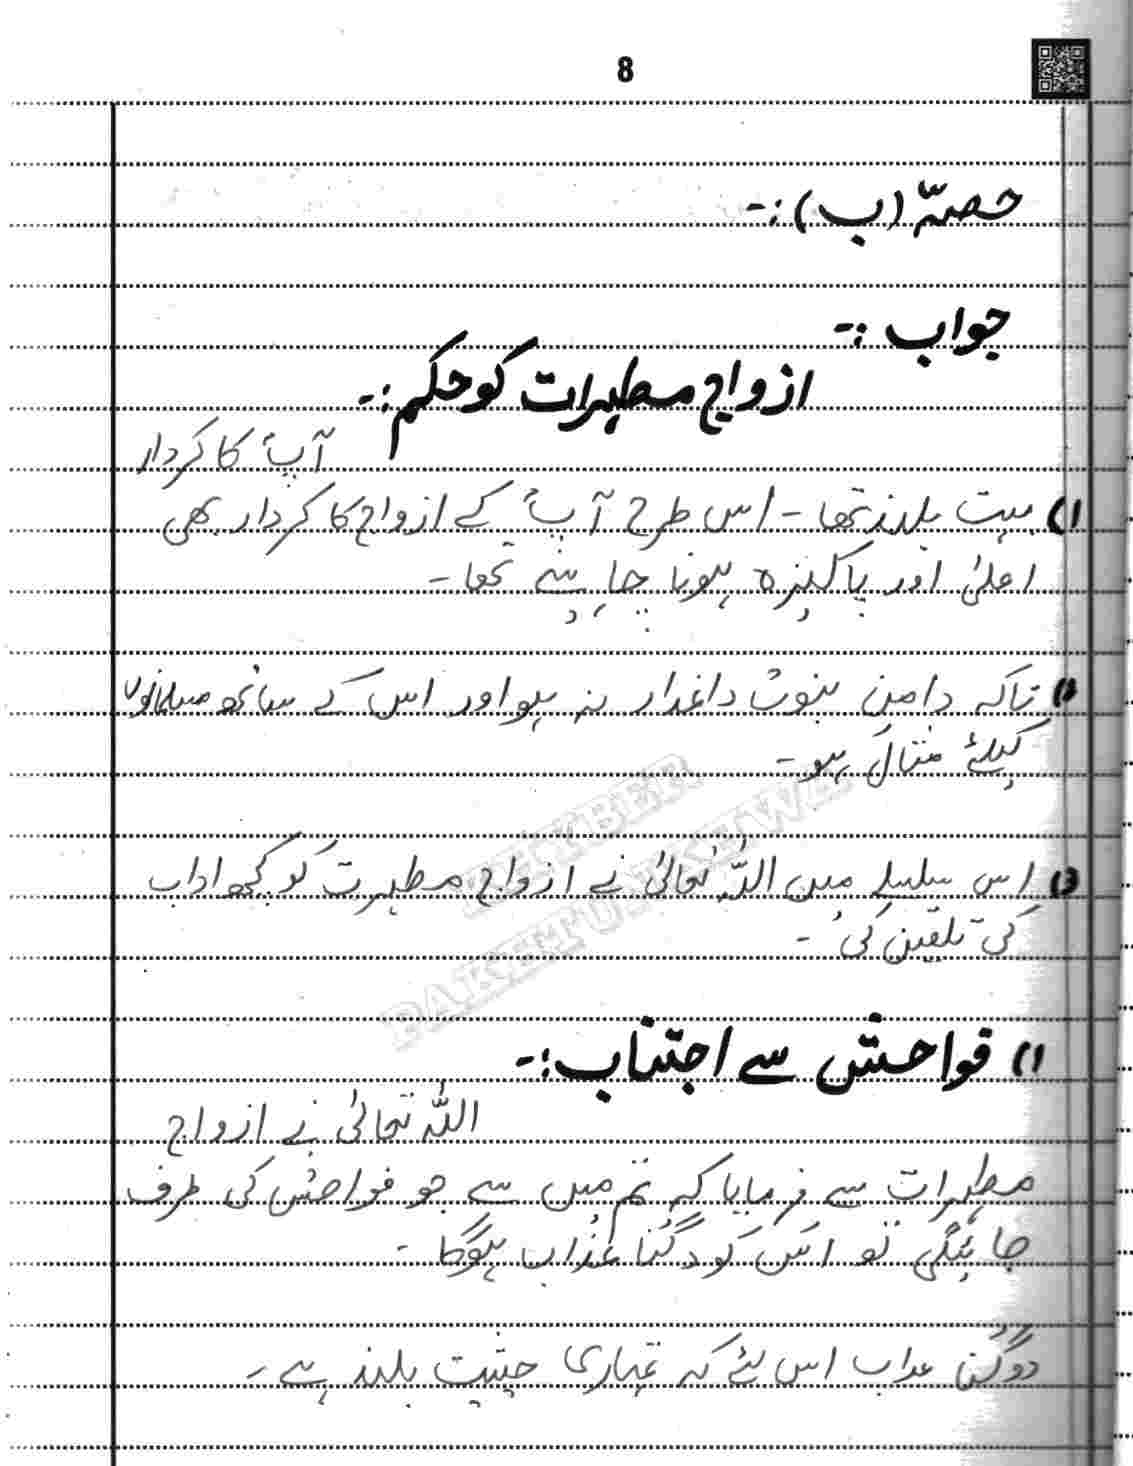 8
حصہّ (ب) :-
جواب :-
ازواج مطہرات کو حکم :-
آپؐ کا کردار
(1 بہت بلند تھا - اس طرح آپؐ کے ازواج کا کردار بھی
اعلیٰ اور پاکیزہ ہونا چاہئیے تھا -
(2 تاکہ دامن نبوت داغدار نہ ہو اور اس کے ساتھ مسلمانوں
کیلئے مثال ہو -
(3 اس سلسلے میں اللہ تعالیٰ نے ازواج مطہرت کو کچھ اداب
کی تلقین کی -
KHYBER
PAKHTUNKHWA
(1 فواحش سے اجتناب :-
اللہ تعالیٰ نے ازواج
مطہرات سے فرمایا کہ تم میں سے جو فواحش کی طرف
جائیگی تو اس کو دگنا عذاب ہوگا -
دوگنا عداب اس لئے کہ تمہاری حثیت بلند ہے -